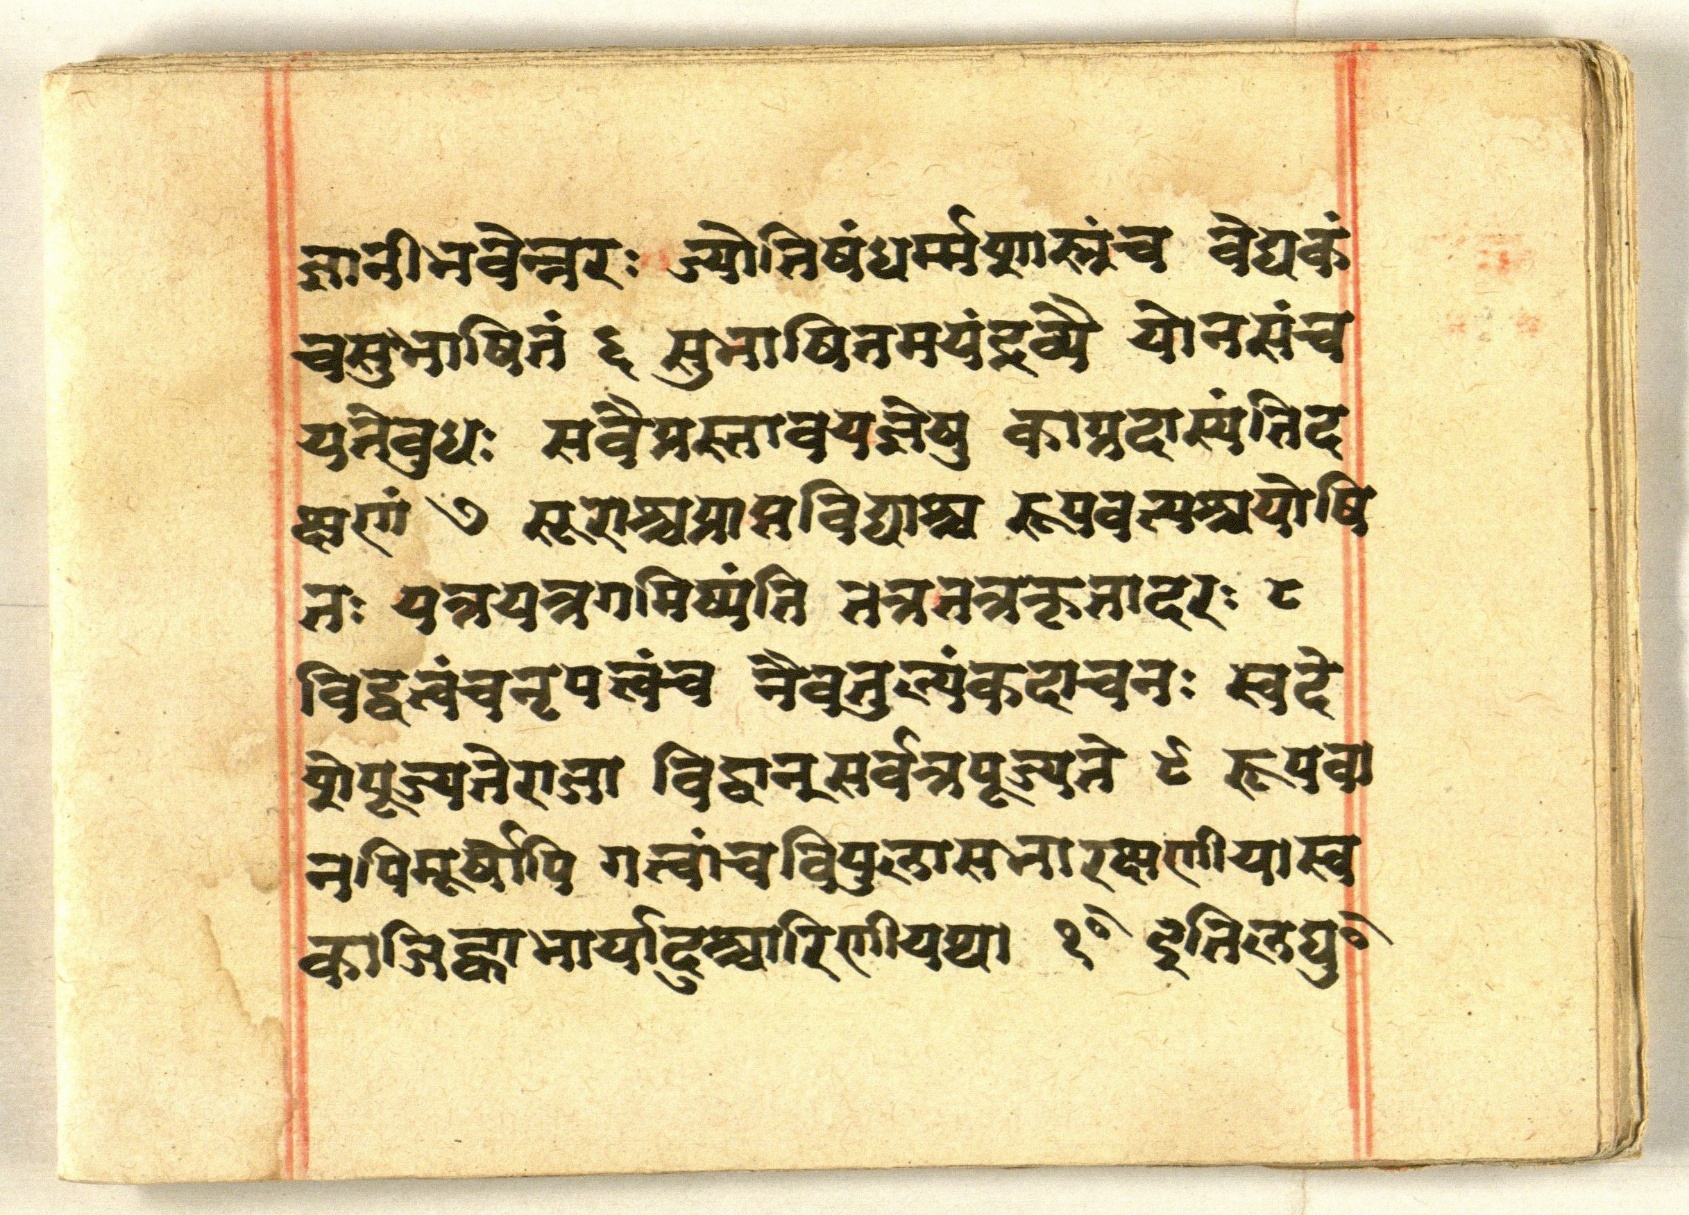 ज्ञानीभवेन्नरः ज्योतिषंधर्म्मशास्त्रंच वैद्यकं
चसुभाषितं ६ सुभाषितमयंद्रव्यै योनसंच
यतेबुधः सवैप्रस्तावयज्ञेषु काप्रदास्यंतिद
क्षणां ७ सूराश्चप्राप्तविद्याश्च रूपवत्यश्चयोषि
तः यत्रयत्रगमिष्यंति तत्रतत्रकृतादरः ८
विद्वत्वंचनृपत्वंच नैवतुल्यंकदाचनः स्वदे
शेपूज्यतेराजा विद्वान्सर्वत्रपूज्यते ९ रूपवा
नपिमूर्षोपि गत्वांचविपुलासभारक्षणीयास्व
काजिह्वाभार्यादुश्चारिणीयथा १० इतिलघु०